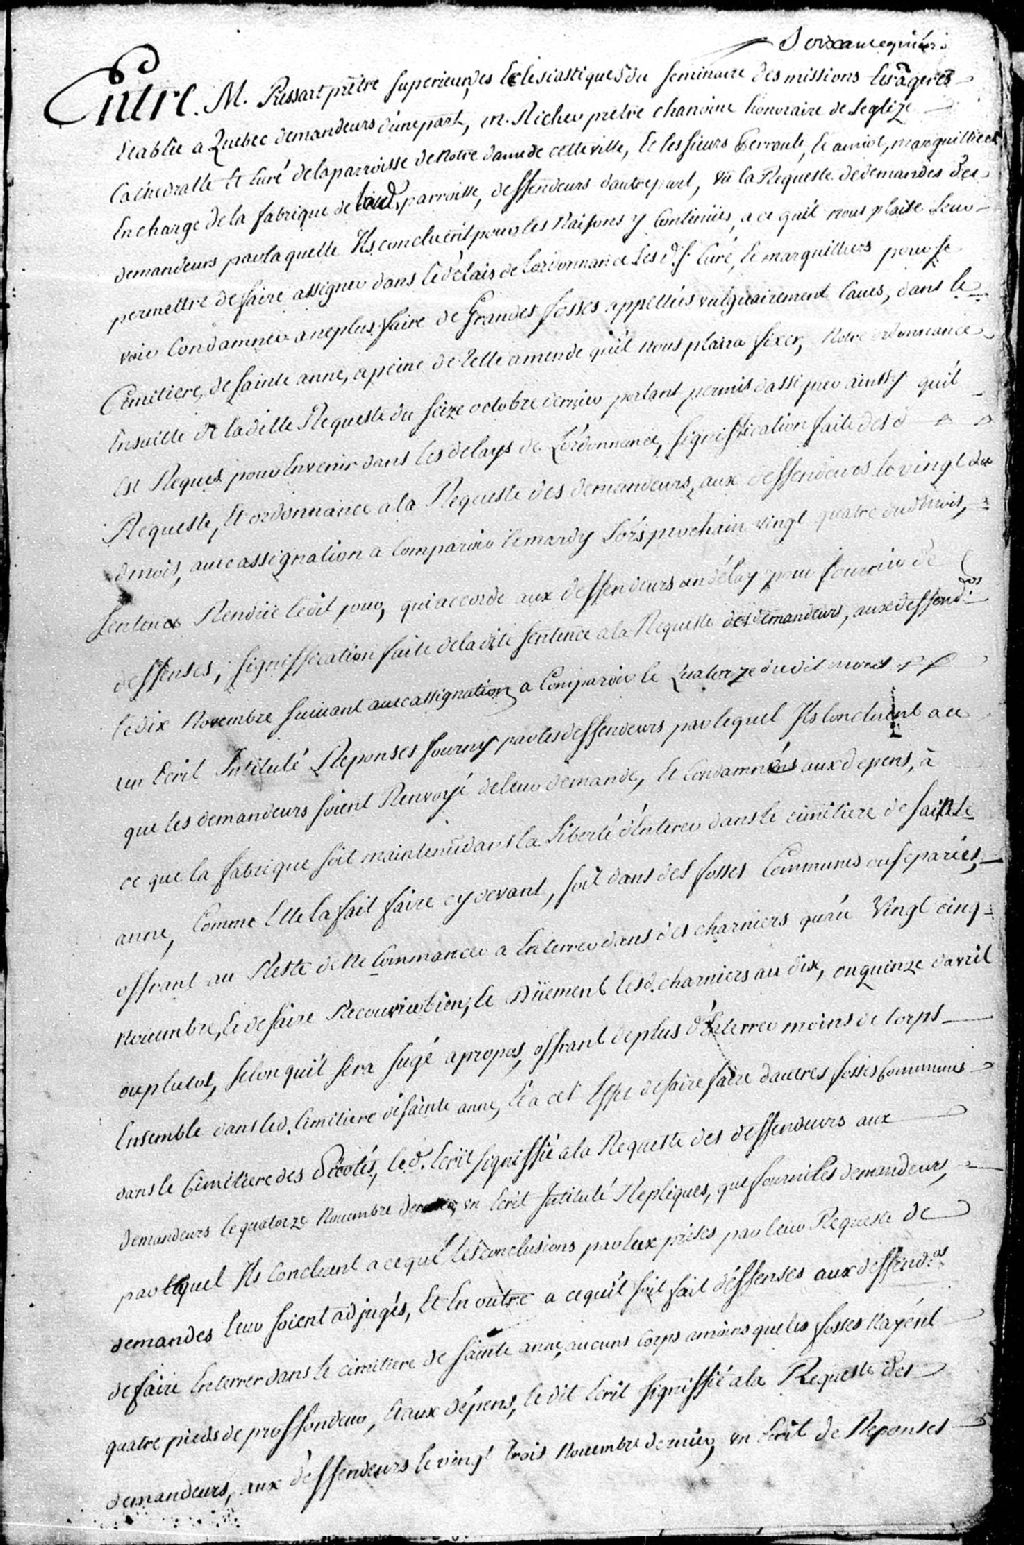 Entre M. Pressart prêtre superieur des Eclesiastiques du seminaire des missions Etrãgeres
Etablie a Quebec demandeurs d'une part, m. Recher pretre chanoine honoraire de leglize
Cathedralle et Curé de la parroisse de Notre dame de cette ville, et les sieurs Perrault, le amiot, marguilliers
En charge de la fabrique de lad. parroisse, deffendeurs d'autre part, vu la Requeste de demandes des
demandeurs par laquelle Ils concluënt pour les Raisons y Contenües, a ce quil nous plaise Leur
permettre de faire assigner dans le délais de Lordonnance Les d. Sr. Curé, le marguilliers pour se
voir Condamner a ne plus faire de Grandes fosses appellées vulguairement Caves, dans le
Cimetiere, de sainte anne, a peine de telle amende quil nous plaira fixer, Notre ordonnance
Ensuitte de la ditte Requeste du seize octobre dernier portant permis d'assigner ainsy quil
Est Requis pour En venir dans les delays de Lordonnance, signiffication faite des d
Requeste, Et ordonnance a la Requeste des demandeurs, aux deffendeurs le vingt du
d. mois, avec assignation a Comparoir le mardy Lors prochain vingt quatre dud. mois,
sentence Rendüe ledit jour, qui accorde aux deffendeurs un délay pour fournir de
deffenses, signiffication faite de la dite sentence a la Requeste des demandeurs, aux deffend.rs
le dix Novembre suivant avec assignation a Comparoir le Quatorze du dit mois
un Ecrit Intitulé Reponses fourny par les deffendeurs par lequel Ils Concluent a ce
que les demandeurs soient Renvoyé de leur demande, Et Condamnés aux depens, à
ce que la fabrique soit maintenüe dans la Liberté d'Enterrer dans le cimetiere de sainte
anne, Comme Elle la fait faire cy devant, soit dans des fosses Communes ou separées,
offrant au Reste de Ne Commancer a Enterrer dans des charniers qu'au Vingt cinq
Novembre, Et de faire Recouvrir bien, et Düement lesd. charniers au dix, ou quinze d'avril
ou plutot, selon quil sera Jugé apropos, offrant de plus d'Enterrer moins de Corps
Ensemble dans led. Cimetiere de sainte anne, Et a cet Effet de faire faire d'autres fosses Communes
dans le Cimetiere des Picotés, led. Ecrit signiffié a la Requeste des deffendeurs aux
demandeurs le quatorze Novembre dernier, un Ecrit Intitulé Repliques, que fourni les demandeurs,
par lequel Ils Concluent a ce que les conclusions par Eux prises par leur Requeste de
demandes leur soient adjugés, Et En outre a ce quil soit fait deffenses aux deffend.rs
de faire Enterrer dans le cimetiere de sainte anne, aucuns Corps amoins que les fosses Nayënt
quatre pieds de proffondeur, Et aux dépens, le dit Ecrit signiffié a la Requeste des
demandeurs, aux deffendeurs le vingt trois Novembre dernier, un Ecrit de Reponses